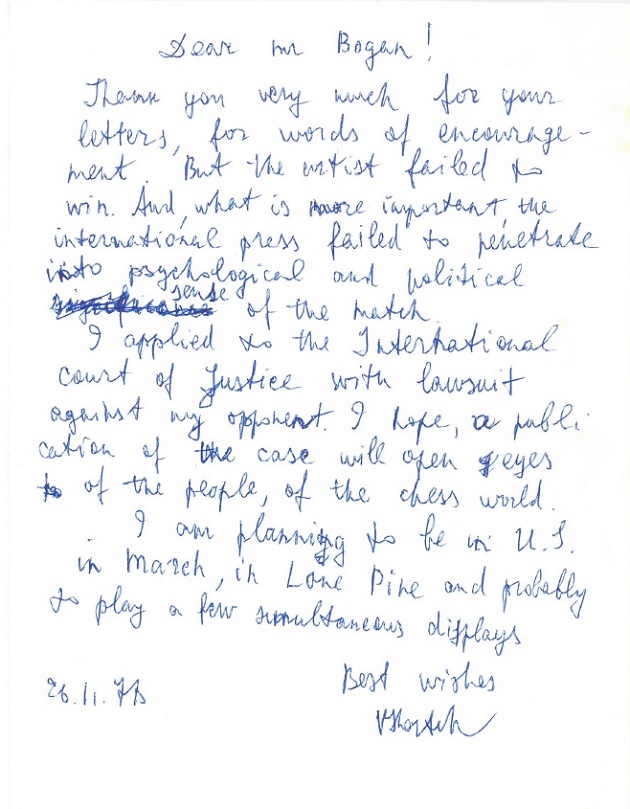 Dear mr Bogan!
Thank you very much for your
letters, for words of encourage-
ment. But the artist failed to
win. And, what is more important, the
international press failed to penetrate
into psychological and political
sense of the match.
I applied to the International
court of Justice with lawsuit
against my opponent. I hope, a publi
cation of the case will open eyes
of the people, of the chess world.
I am planning to be in U.S.
in March, in Lone Pine and probably
to play a few simultaneous displays
Best wishes
26.11.78